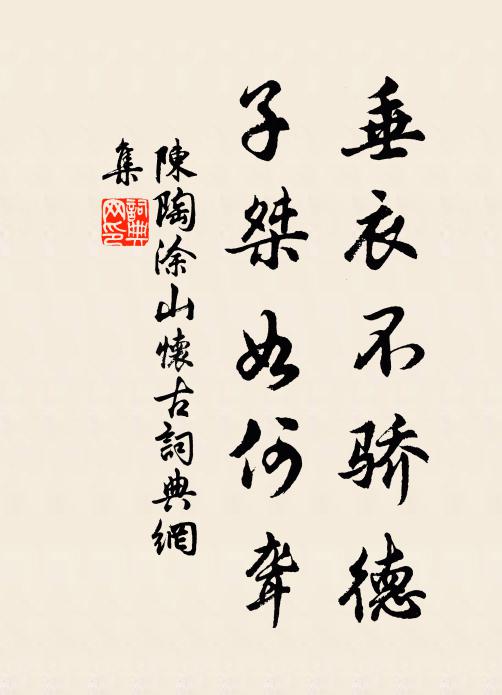 垂衣不骄德
子桀如何聋
陳陶涂山懷古詞典網
集
詞典
网印